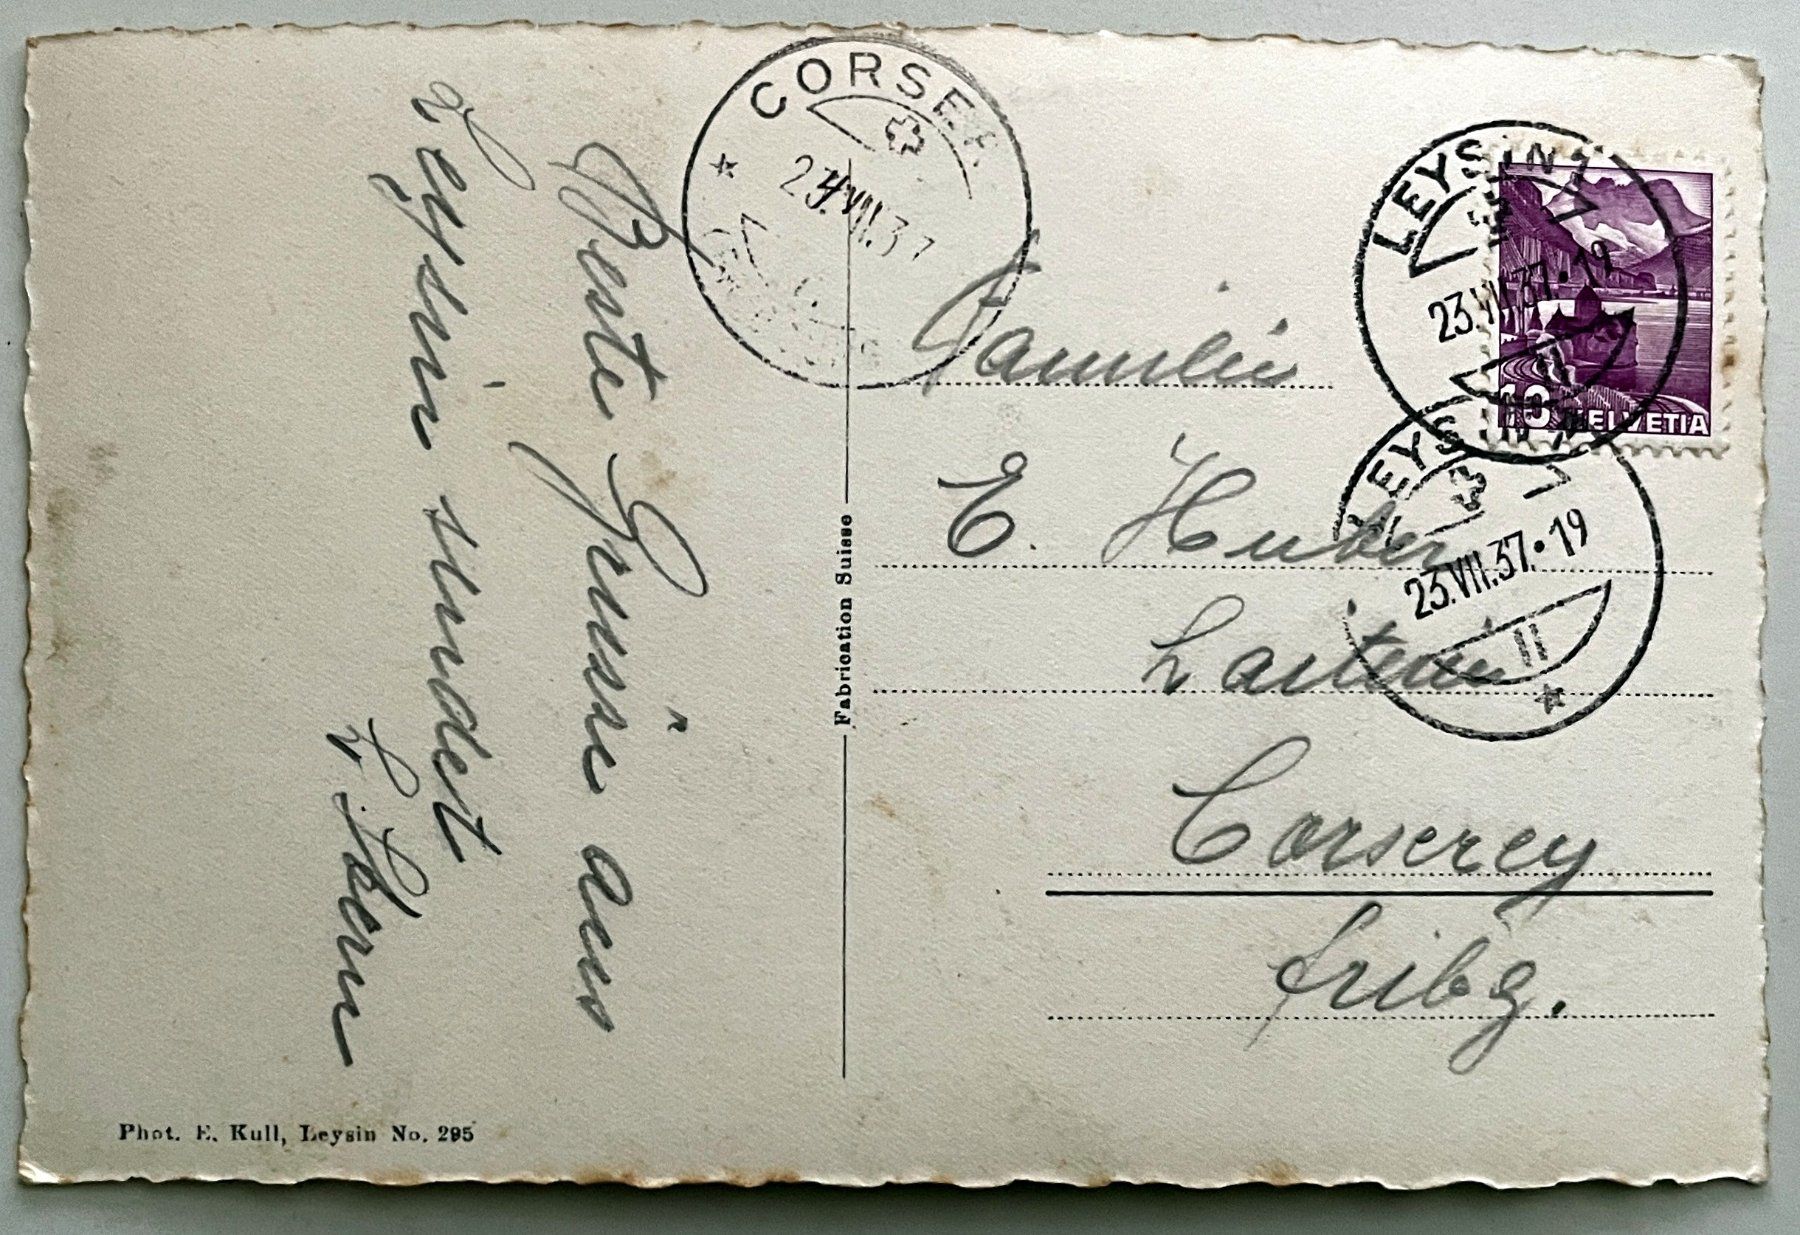 Beste Grüsse aus
Leysin sendet
L. Stern
Phot. E. Kull, Leysin No. 295
Fabrication Suisse
CORSEREY
24.VII.37
Familie
E. Huber
Corserey
Fribg.
LEYSIN 1
23.VII.37·19
10 HELVETIA
LEYSIN 1
23.VII.37·19
II